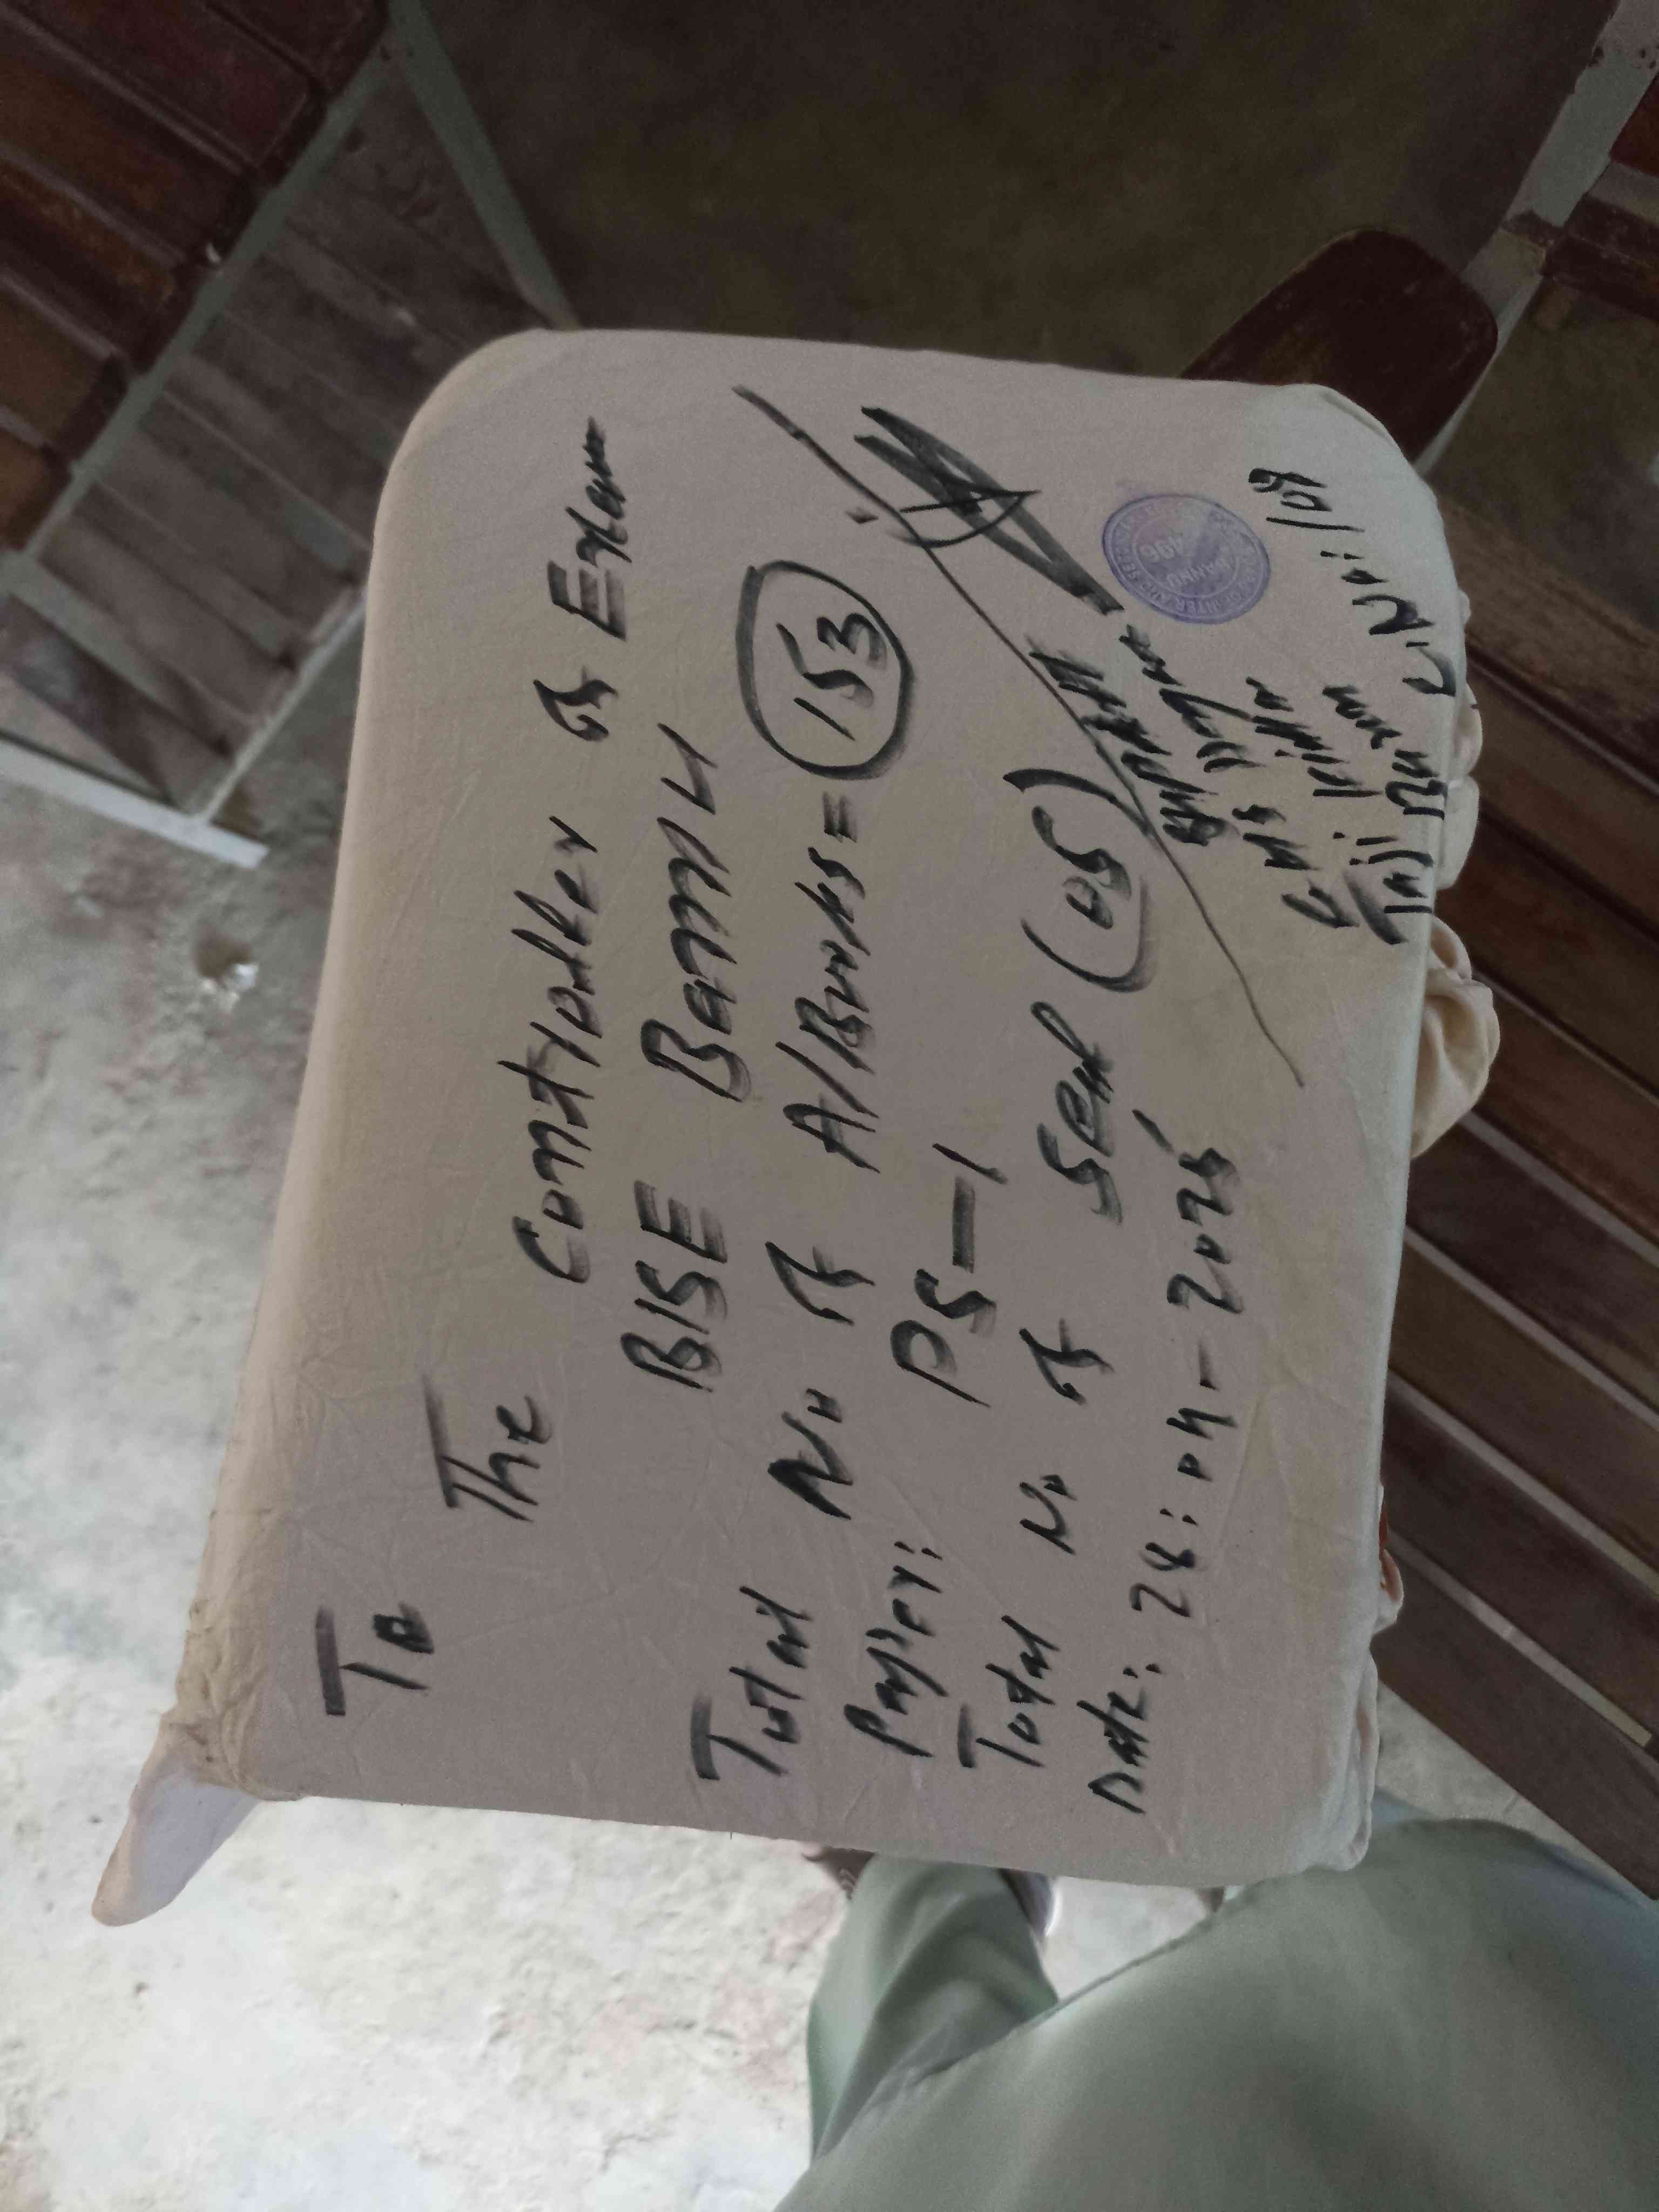 To
The
Controller of Exam
BISE Bannu
Total No of A/Books = 153
Paper: PS-1
Total No of Seal (05)
Date: 28:04-2025
Supdtt
G
Taji C.No: 108
BANNU
406